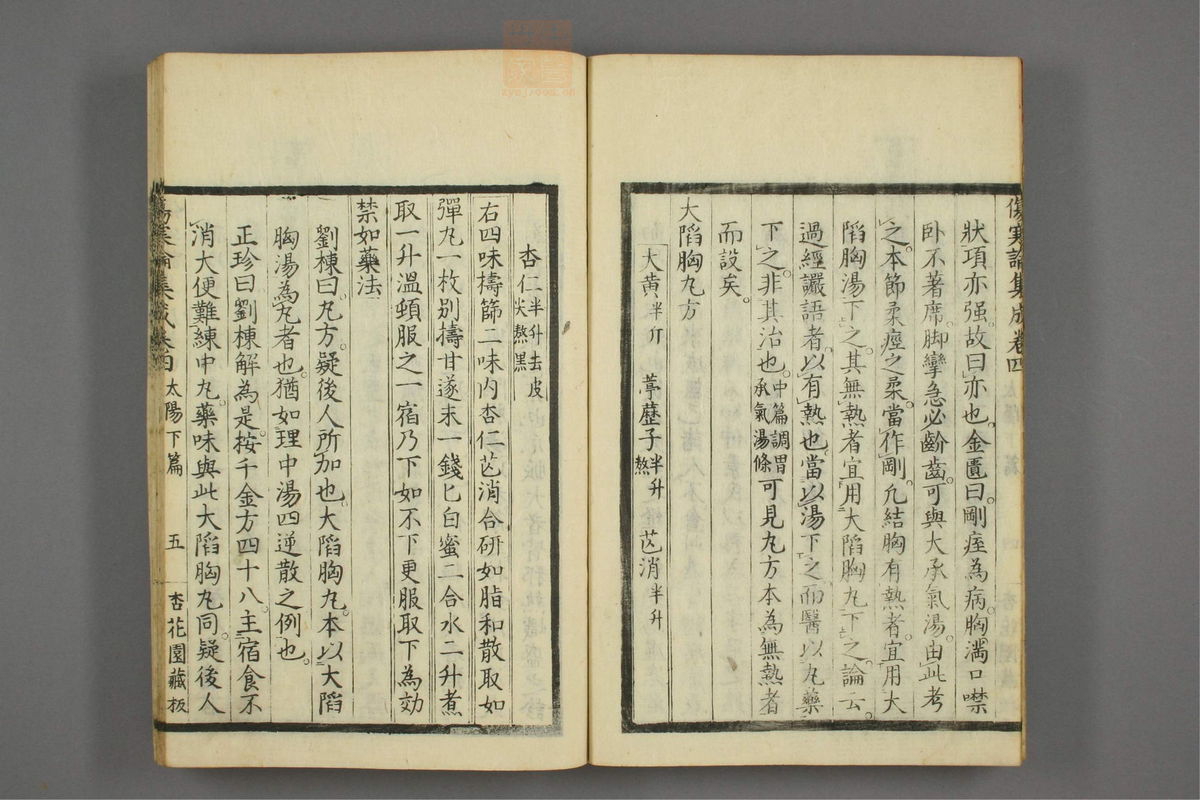 傷寒論集成卷四
狀項亦强。故曰亦也。金匱曰。剛痓為病。胸滿口噤
卧不著席。脚攣急必齘齒。可與大承氣湯。由此考
之。本節柔痙之柔。當作剛。凢結胸有熱者。宜用大
陷胸湯下之。其無熱者。宜用大陷胸丸下之。論云。
過經讝語者。以有熱也。當以湯下之。而醫以丸藥
下之。非其治也。中篇調胃承氣湯條可見丸方本為無熱者
而設矣。
大陷胸丸方
大黃半斤 葶藶子半升熬 芒消半升
杏仁半升去皮尖熬黑
右四味擣篩二味內杏仁芒消合研如脂和散取如
彈丸一枚別擣甘遂末一錢匕白蜜二合水二升煮
取一升溫頓服之一宿乃下如不下更服取下為効
禁如藥法
劉棟曰。丸方。疑後人所加也。大陷胸丸。本以大陷
胸湯為丸者也。猶如理中湯四逆散之例也。
正珍曰。劉棟解為是。按千金方四十八。主宿食不
消大便難練中丸。藥味與此大陷胸丸同。疑後人
太陽下篇 五 杏花園藏板